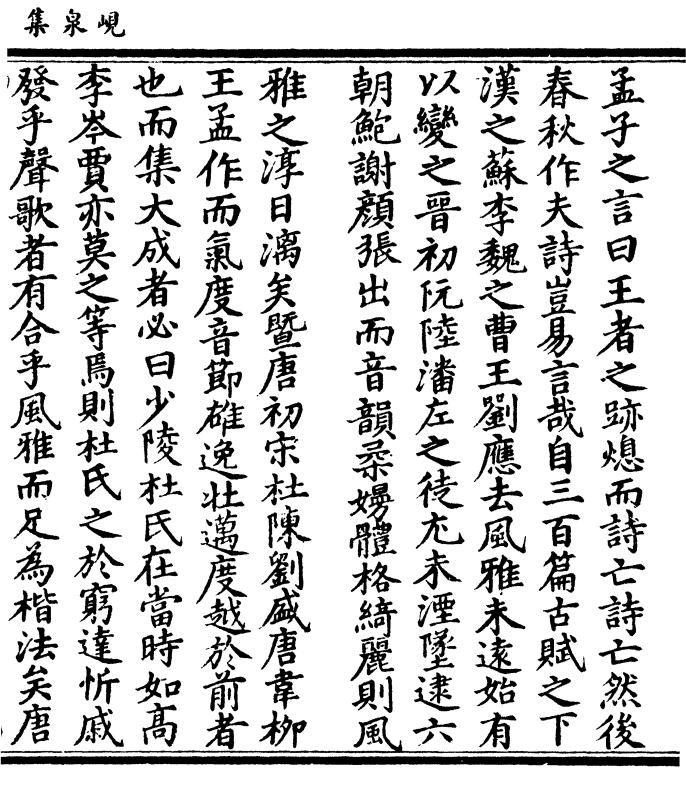 峴泉集
孟子之言曰王者之跡熄而詩亡詩亡然後
春秋作夫詩豈易言哉自三百篇古賦之下
漢之蘇李魏之曹王劉應去風雅未遠始有
以變之晉初阮陸潘左之徒尤未湮墜逮六
朝鮑謝顔張出而音韻柔嫚體格綺麗則風
雅之淳日漓矣暨唐初宋杜陳劉盛唐韋柳
王孟作而氣度音節雄逸壯邁度越於前者
也而集大成者必曰少陵杜氏在當時如高
李岑賈亦莫之等焉則杜氏之於窮達忻戚
發乎聲歌者有合乎風雅而足為楷法矣唐